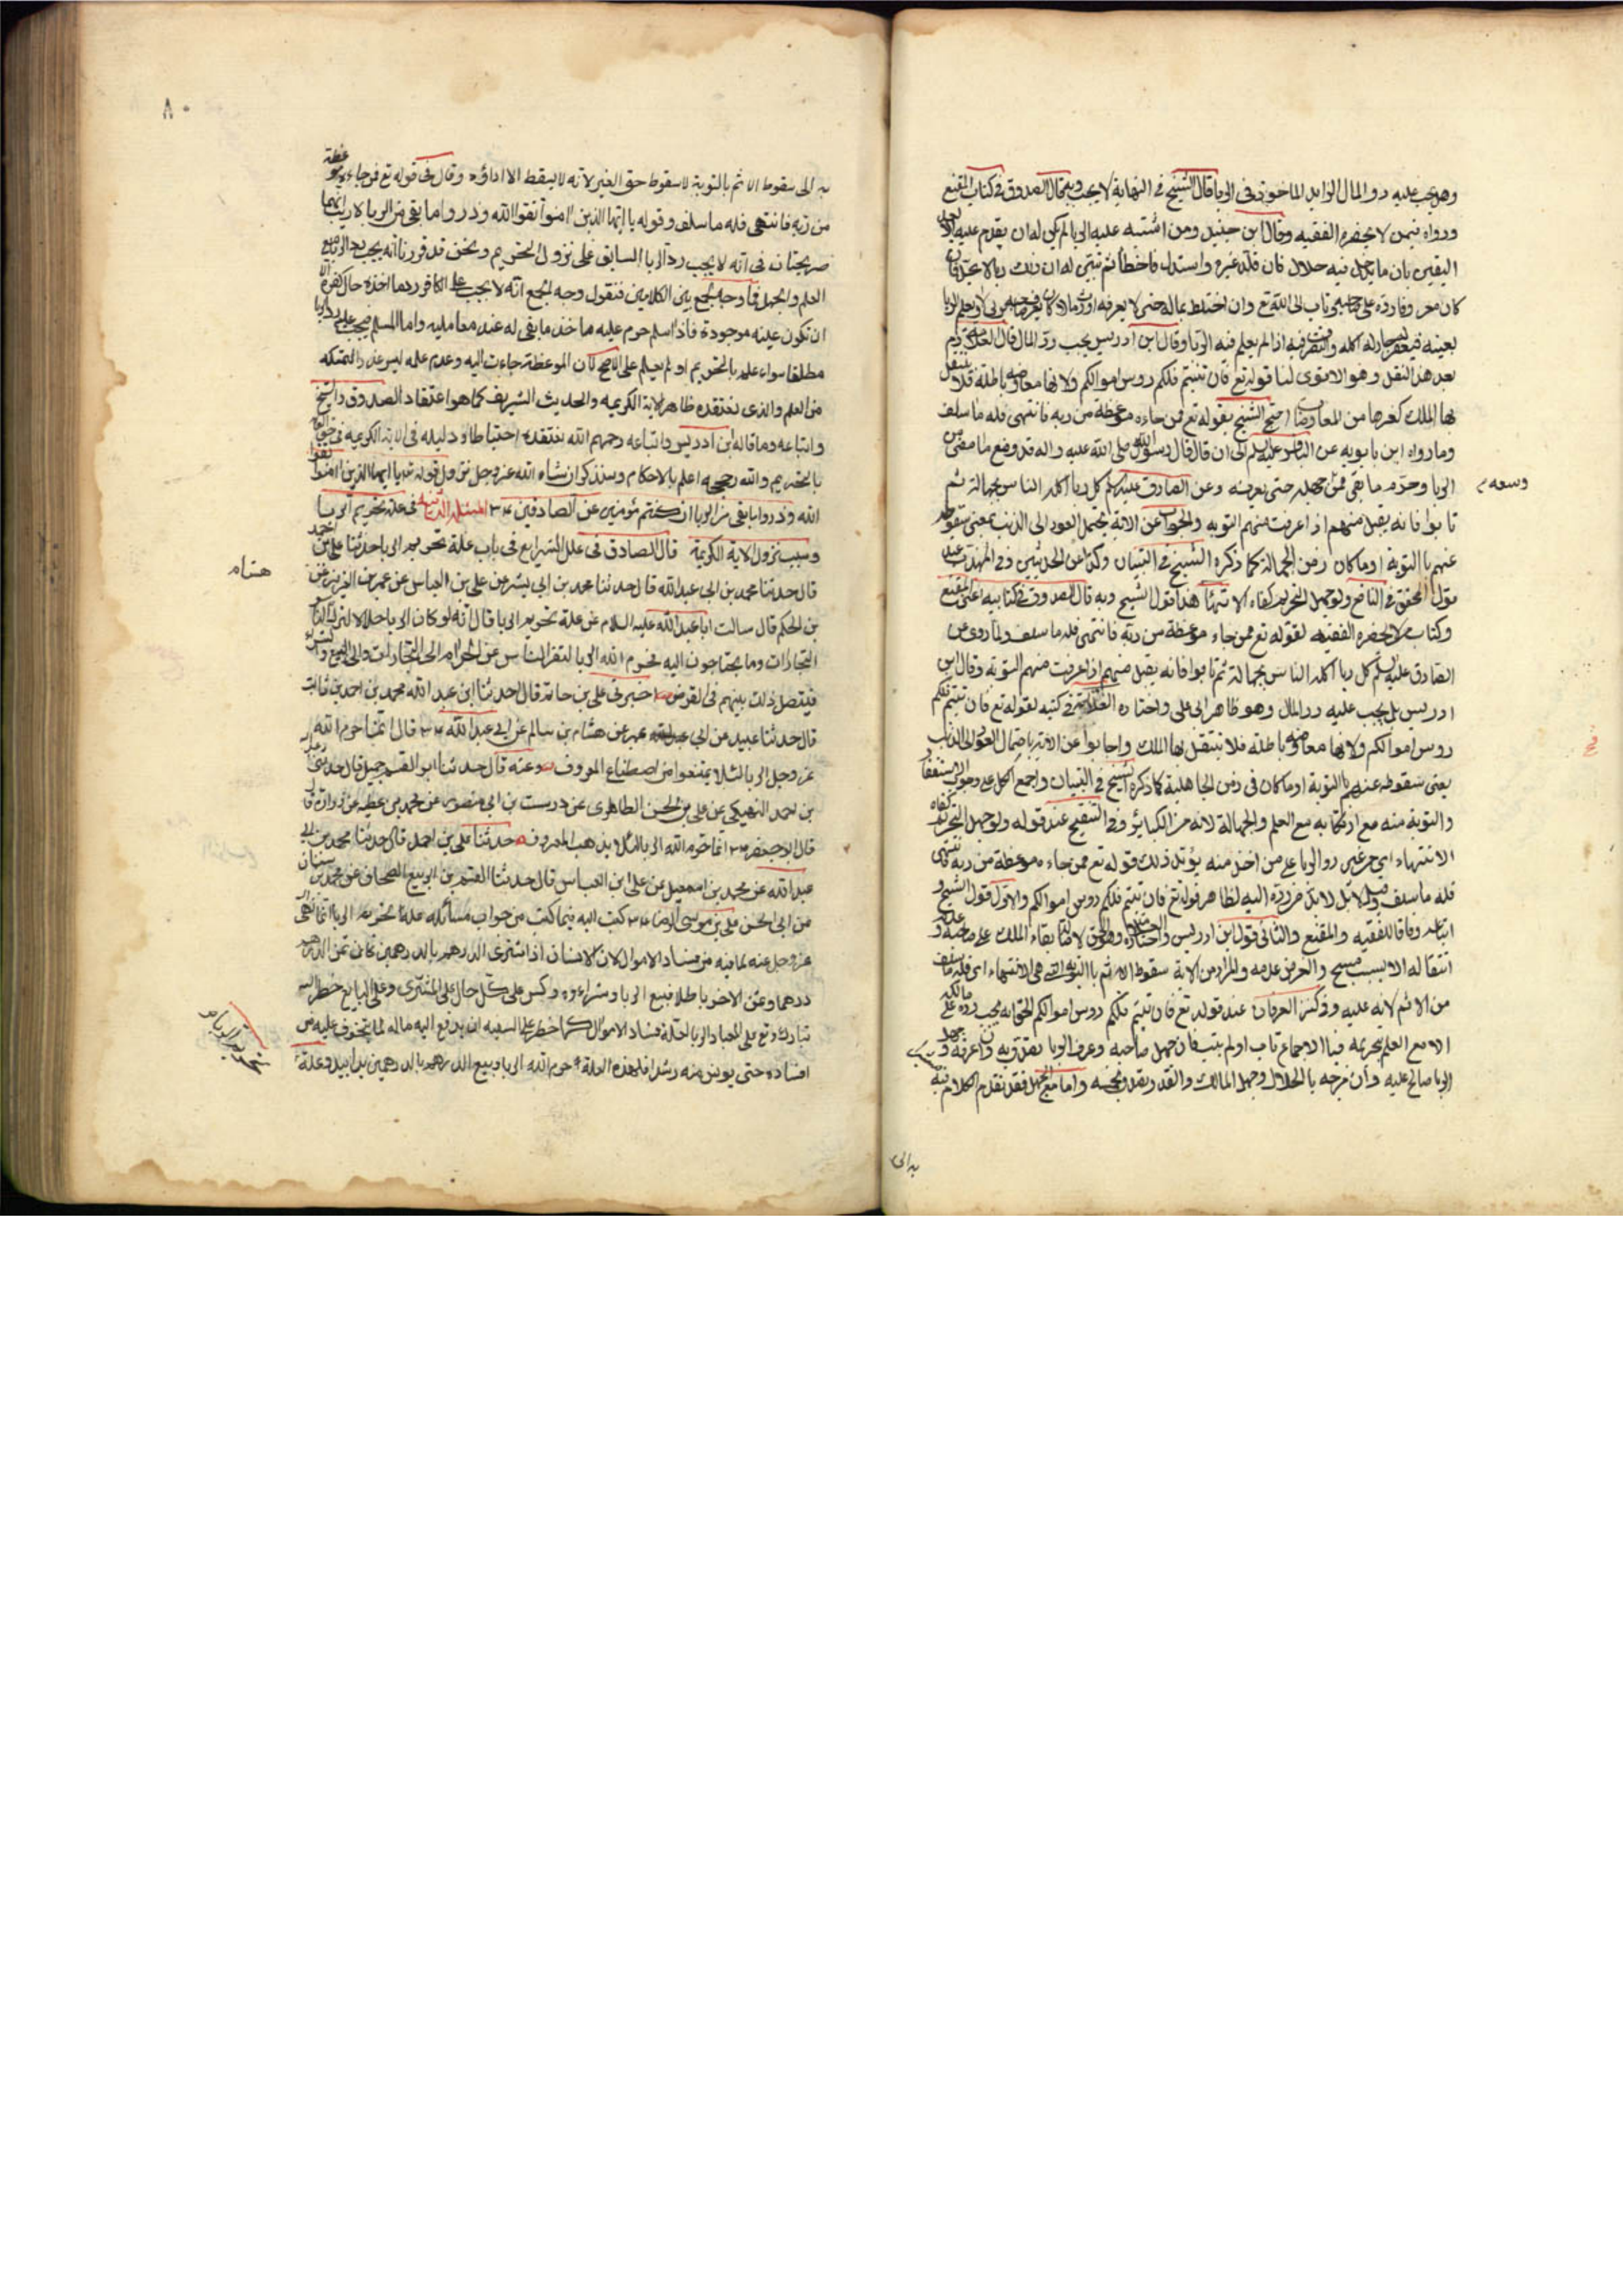 وهل يجب عليه رد المال الزايد الماخوذ في الربا قال الشيخ في النهاية لا يجب وبه قال الصدوق في كتاب المقنع
ورواه فيمن لا يحضره الفقيه وقال ابن جنيد ومن اشتبه عليه الربا لم يكن له ان يقدم عليه الا بعد
اليقين بان ما يدخل فيه حلال فان قلد غيره واستدل فاخطأ ثم تبين له ان ذلك ربا لا يحل فان
كان معروفا رده على صاحبه وتاب الى الله تع وان اختلط بماله حتى لا يعرفه
بعينه اكله والتصرف فيه اذا لم يعلم فيه الربا وقال ابن ادريس يجب رد المال قال العلامة
بعد هذا النقل وهو الاقوى لنا قوله تع فان تبتم فلكم رؤس اموالكم ولانها معاوضة باطلة فلا ينتقل
بها الملك كغيرها من المعاوضات احتج الشيخ بقوله تع فمن جاءه موعظة من ربه فانتهى فله ما سلف
وما رواه ابن بابويه عن الباقر عليه السلم الى ان قال قال رسول الله صلى الله عليه واله قد وضع ما مضى من
الربا وحرم ما بقى فمن جهله وسعه جهله حتى يعرفه وعن الصادق عليه السلم كل ربا اكله الناس بجهالة ثم
تابوا فانه يقبل منهم اذا عرفت منهم التوبه والجواب عن الاية يحتمل العود الى الذنب بمعنى سقوطه
عنهم بالتوبة او ما كان زمن الجهالة كما ذكره الشيخ في التبيان وكذا عن الحديثين وفي المهذب عند
قول المحقق في النافع ولو جهل التحريم كفاه الانتهاء هذا قول الشيخ وبه قال الصدوق في كتابيه اعني المقنع
وكتاب من لا يحضره الفقيه لقوله تع فمن جاءه موعظة من ربه فانتهى فله ما سلف ولما روى عن
الصادق عليه السلم كل ربا اكله الناس بجهالة ثم تابوا فانه يقبل منهم اذا عرفت منهم التوبة وقال ابن
ادريس بل يجب عليه رد المال وهو ظاهر ابى على واختاره العلامة في كتبه لقوله تع فان تبتم فلكم
رؤس اموالكم ولانها معاوضة باطلة فلا ينتقل بها الملك واجابوا عن الاية باحتمال العود الى الذنب
يعنى سقوطه عنهم بالتوبة او ما كان في زمن الجاهلية كما ذكره الشيخ في التبيان واجمع الكل على وجوب الاستغفار
والتوبة منه مع ارتكابه مع العلم والجهالة لانه من الكباير وفي التنقيح عند قوله ولو جهل التحريم كفاه
الانتهاء اى من غير رد الربا على من اخذ منه يؤيد ذلك قوله تع فمن جاءه موعظة من ربه فانتهى
فله ما سلف وقيل لا بل لا بد من رده اليه لظاهر قوله تع فان تبتم فلكم رؤس اموالكم والاول قول الشيخ و
اتباعه وفاقا للفقيه والمقنع والثانى قول ابن ادريس واختاره العلامة وهو الحق لاصالة بقاء الملك على صاحبه وعدم
انتقاله الا بسبب مبيح والفرض عدمه والمراد من الاية سقوط الاثم بالتوبة التى هى الانتهاء اى فله ما سلف
من الاثم لا انه عليه وفي كنز العرفان عند قوله تع فان تبتم فلكم رؤس اموالكم الحق انه يجب رده على مالكه
الا مع العلم بتحريمه فبالاجماع تاب اولم يتب فان جهل صاحبه وعرف الربا تصدق به وان عرفه وجهل
الربا صالح عليه وان مزجه بالحلال وجهل المالك والقدر تصدق بخمسه واما مع الجهل فقد تقدم الكلام فيه
به الى
٨٠
به الى سقوط الاثم بالتوبة لا سقوط حق الغير لانه لا يسقط الا اداؤه وقال في قوله تع فمن جاءه موعظة
من ربه فانتهى فله ما سلف وقوله يا ايها الذين امنوا اتقوا الله وذروا ما بقى من الربا لا ريب انهما
صريحتان في انه لا يجب رد الربا السابق على نزول التحريم ونحن قد قررنا انه يجب رد الربا مع
العلم والجهل فما وجه الجمع بين الكلامين فنقول وجه الجمع انه لا يجب على الكافر رد ما اخذه حال كفره الا
ان تكون عينه موجودة فاذا اسلم حرم عليه اخذ ما بقى له عند معامليه واما المسلم فيجب عليه رد الربا
مطلقا سواء علم بالتحريم او لم يعلم على الاصح لان الموعظة جاءت اليه وعدم علمه ليس عذرا لتمكنه
من العلم والذى نعتقده ظاهر الاية الكريمه والحديث الشريف كما هو اعتقاد الصدوق والشيخ
واتباعه وما قاله ابن ادريس واتباعه رحمهم الله نعتقده احتياطا ودليله في الاية الكريمه
بالتحريم والله اعلم بالاحكام وسنذكر ان شاء الله عز وجل نزول قوله تع يا ايها الذين امنوا اتقوا
الله وذروا ما بقى من الربا ان كنتم مؤمنين عن الصادقين ع المسئلة الثانية في علة تحريم الربا
وسبب نزول الاية الكريمة قال الصادق في علل الشرايع في باب علة تحريم الربا حدثنا على بن احمد
قال حدثنا محمد بن ابى عبد الله قال حدثنا محمد بن ابى بشر عن على بن العباس عن عمر بن عبد العزيز عن
هشام
بن الحكم قال سالت ابا عبد الله عليه السلام عن علة تحريم الربا قال انه لو كان الربا حلالا لترك الناس
التجارات وما يحتاجون اليه فحرم الله الربا لتفر الناس عن الحرام الى التجارات والى البيع والشراء
فيتصل ذلك بينهم في القرض اخبرنى على بن حاتم قال حدثنا ابن عبد الله محمد بن احمد بن ثابت
قال حدثنا عبيد عن ابن ابى عمير عن هشام بن سالم عن ابى عبد الله ع قال انما حرم الله
عز وجل الربا لئلا يمتنعوا من اصطناع المعروف وعنه قال حدثنا ابو القسم حميد قال حدثنى عبد الله
بن احمد النهيكى عن على بن الحسن الطاطرى عن درست بن ابى منصور عن محمد بن عطيه عن زرارة قال
قال ابو جعفر ع انما حرم الله الربا لئلا يذهب المعروف حدثنا على بن احمد قال حدثنا محمد بن ابى
عبد الله عن محمد بن اسمعيل عن على ابن العباس قال حدثنا القسم بن الربيع الصحاف عن محمد بن سنان
عن ابى الحسن على بن موسى الرضا ع كتب اليه فيما كتب من جواب مسائله علة تحريم الربا انما نهى الله
عز وجل عنه لما فيه من فساد الاموال لان الانسان اذا اشترى الدرهم بالدرهمين كان ثمن الدرهم
درهما وثمن الاخر باطلا فبيع الربا وشراءه وكس على كل حال على المشترى وعلى البايع فحظر الله
تبارك وتع على العباد الربا لعلة فساد الاموال كما حظر على السفيه ان يدفع اليه ماله لما يتخوف عليه من
افساده حتى يونس منه رشدا فلهذه العلة حرم الله الربا وبيع الدرهم بالدرهمين يدا بيد وعلة